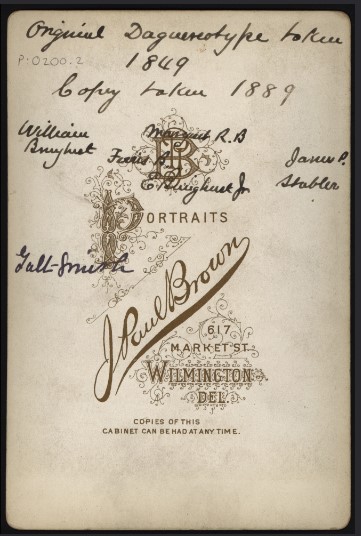 Original Daguereotype taken
P.0200.2
1849
Copy taken 1889
William Margaret R.B
Bringhust Ferris B. James P.
E Bringhust Jr Stabler
PORTRAITS
Galt-Smith
J Paul Brown
617
MARKET ST
WILMINGTON
DEL.
COPIES OF THIS
CABINET CAN BE HAD AT ANY TIME.